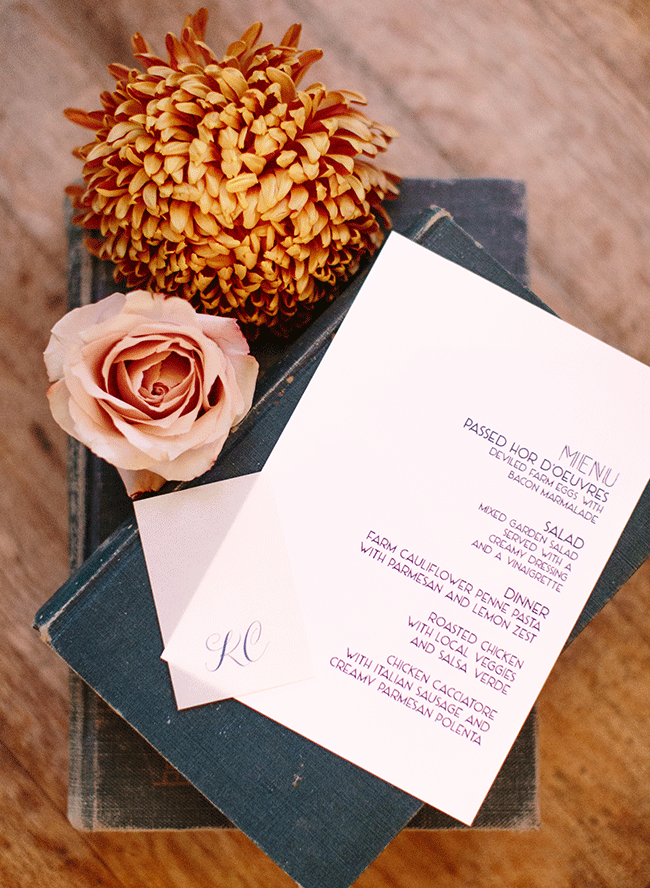 MENU
PASSED HOR D'OEUVRES
DEVILED FARM EGGS WITH
BACON MARMALADE
SALAD
MIXED GARDEN SALAD
SERVED WITH A
CREAMY DRESSING
AND A VINAIGRETTE
DINNER
FARM CAULIFLOWER PENNE PASTA
WITH PARMESAN AND LEMON ZEST
ROASTED CHICKEN
WITH LOCAL VEGGIES
AND SALSA VERDE
CHICKEN CACCIATORE
WITH ITALIAN SAUSAGE AND
CREAMY PARMESAN POLENTA
KC